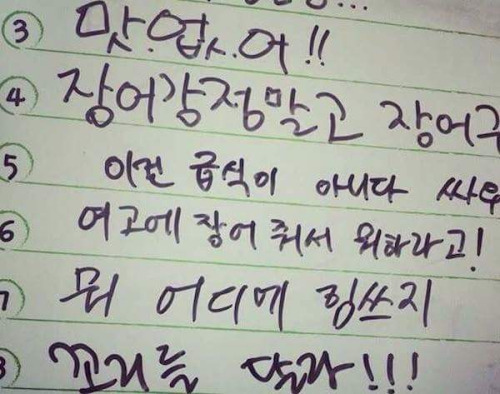 ③ 맛.없.어!!
④ 장어강정말고 장어구
⑤ 이건 급식이 아니다 싸우
⑥ 여고에 장어 줘서 뭐하라고!
뭐 어디에 힘쓰지
꼬리를 달라!!!